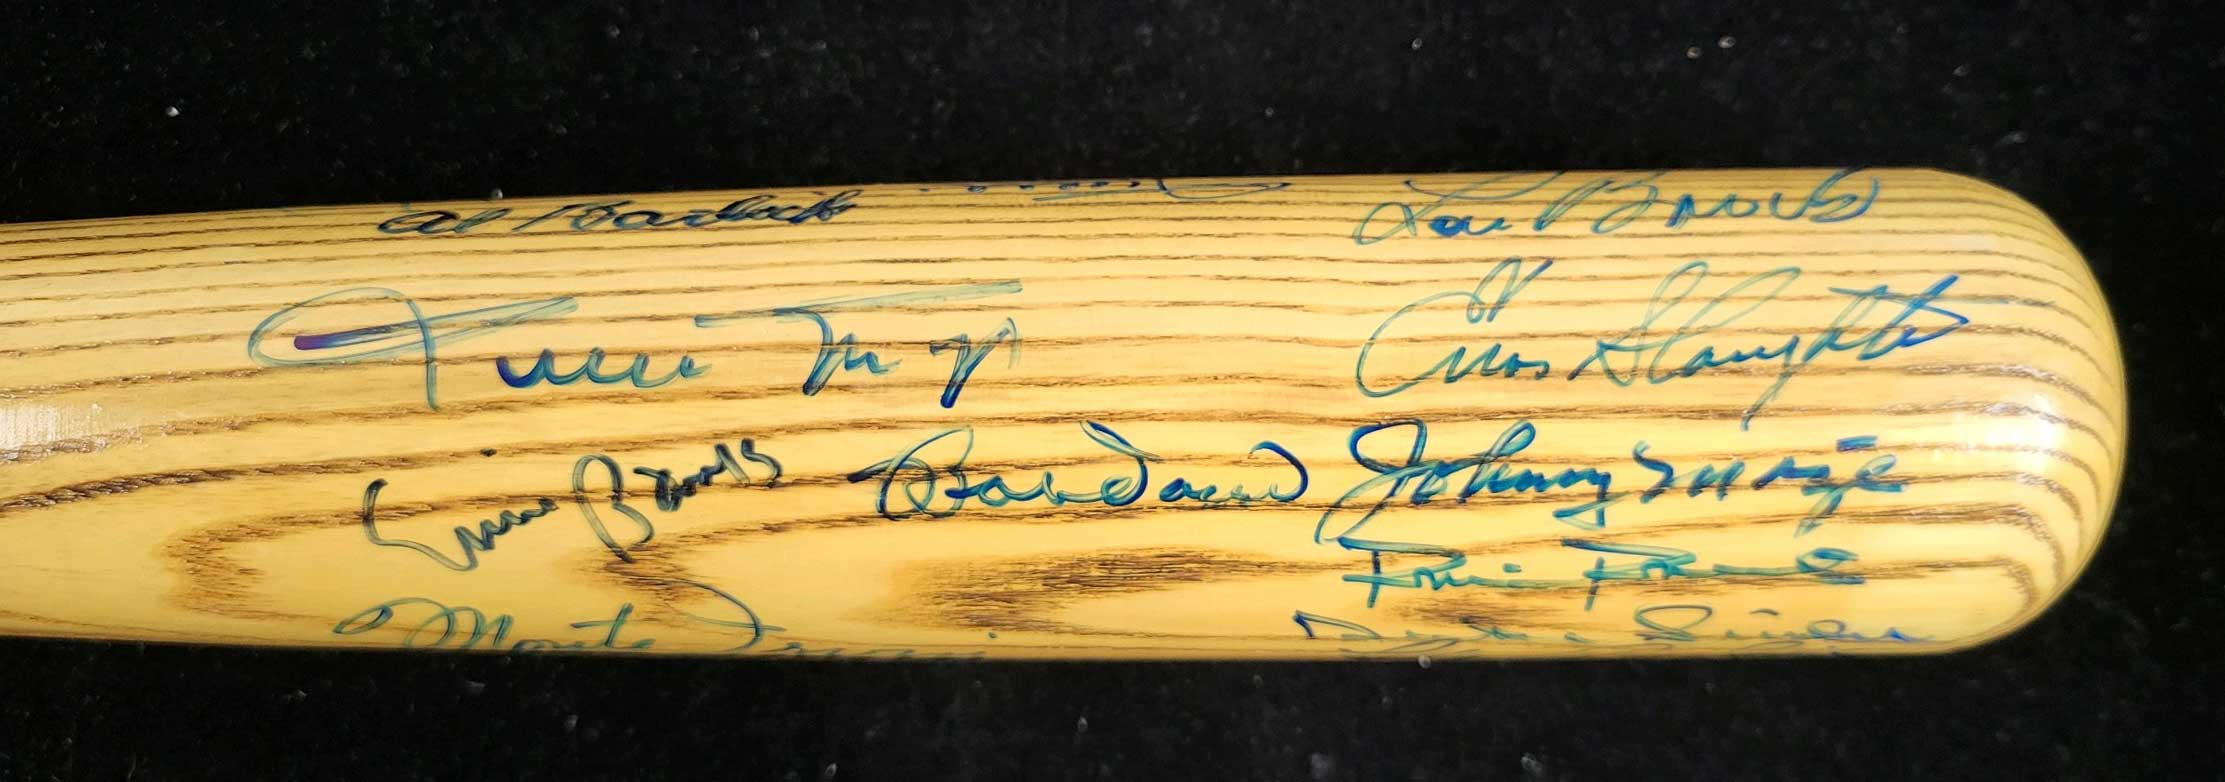 Al Barlick
Lou Brock
Willie Mays
Enos Slaughter
Ernie Banks
Bobby Doerr
Johnny Mize
Robin Roberts
Monte Irvin
Duke Snider